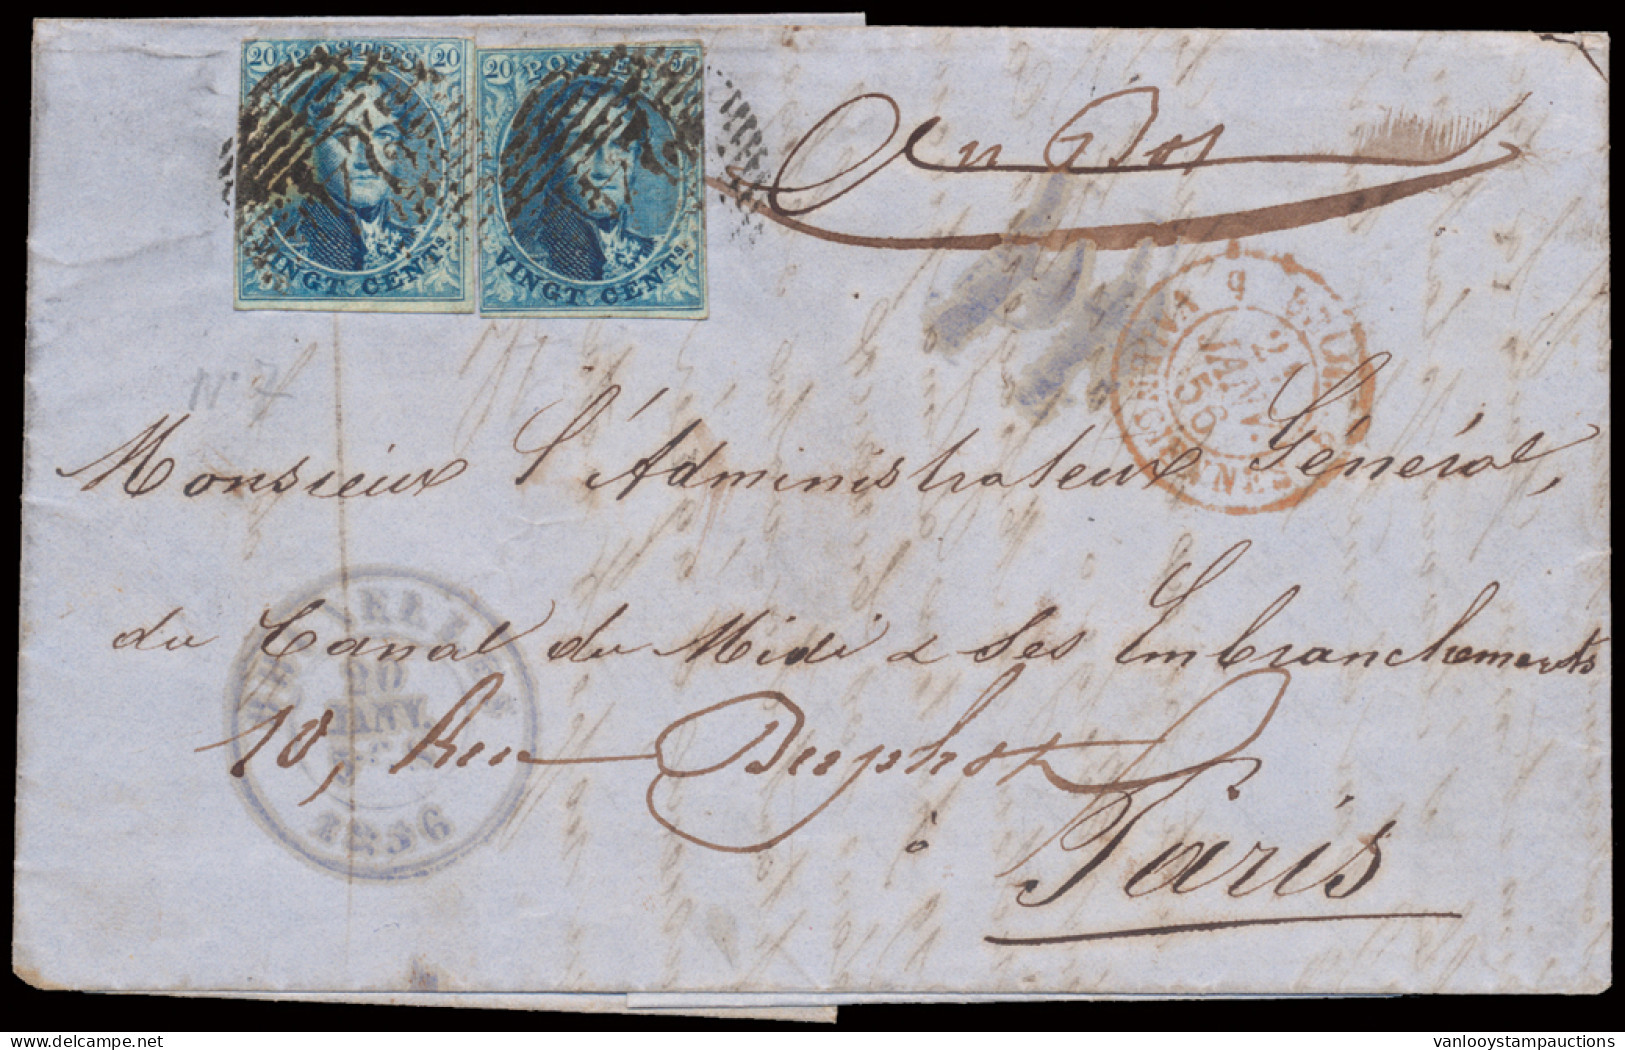 20 POSTES 20
VINGT CENTS.
20 POSTES
VINGT CENTS.
Au Dos
BELG. VALENCIENNES
9
21
JANV.
56
N° 7
Monsieur l'Administrateur Général,
du Canal du Midi & Ses Embranchements
20
JANV.
1856
10, Rue Duphot
à
Paris
delcampe.net
vanlooystampauctions